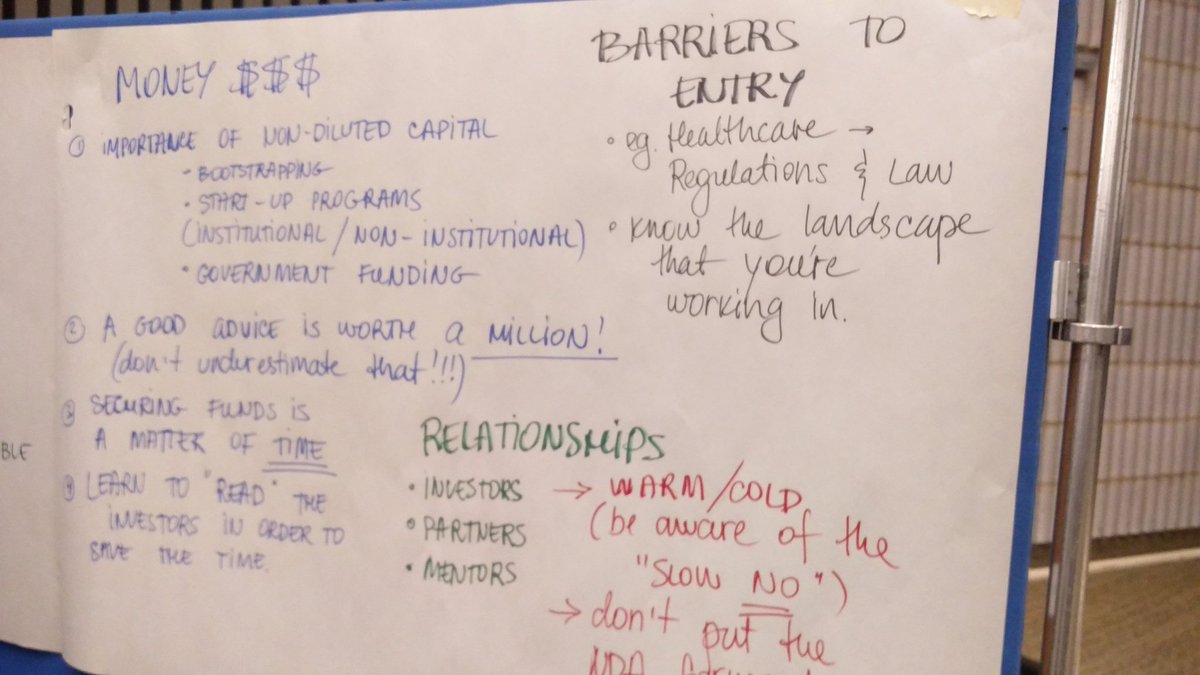 MONEY $$$
① IMPORTANCE OF NON-DILUTED CAPITAL
• BOOTSTRAPPING
• START-UP PROGRAMS
(INSTITUTIONAL / NON-INSTITUTIONAL)
• GOVERNMENT FUNDING
② A GOOD ADVICE IS WORTH A MILLION!
(don't underestimate that!!!)
③ SECURING FUNDS IS
A MATTER OF TIME
④ LEARN TO "READ" THE
INVESTORS IN ORDER TO
SAVE THE TIME.
BARRIERS TO
ENTRY
• eg. Healthcare →
Regulations & Law
• know the landscape
that you're
working in.
RELATIONSHIPS
• INVESTORS
• PARTNERS
• MENTORS
→ WARM/COLD
(be aware of the
"SLOW NO")
→ don't put the
NDA
BLE